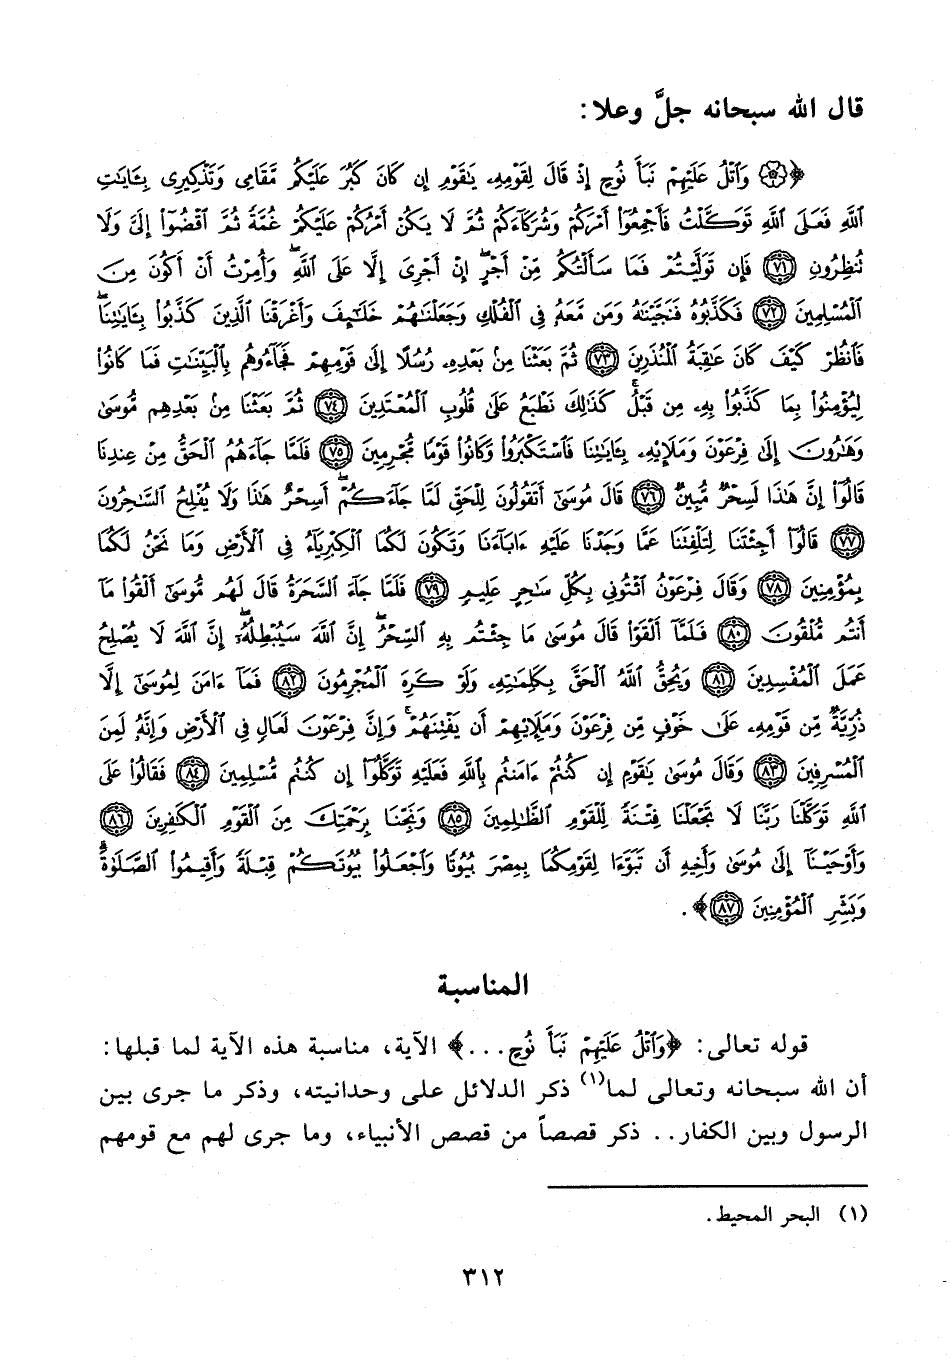 قال الله سبحانه جلَّ وعلا:
﴿۞ وَٱتْلُ عَلَيْهِمْ نَبَأَ نُوحٍ إِذْ قَالَ لِقَوْمِهِۦ يَٰقَوْمِ إِن كَانَ كَبُرَ عَلَيْكُم مَّقَامِى وَتَذْكِيرِى بِـَٔايَٰتِ
ٱللَّهِ فَعَلَى ٱللَّهِ تَوَكَّلْتُ فَأَجْمِعُوٓا۟ أَمْرَكُمْ وَشُرَكَآءَكُمْ ثُمَّ لَا يَكُنْ أَمْرُكُمْ عَلَيْكُمْ غُمَّةً ثُمَّ ٱقْضُوٓا۟ إِلَىَّ وَلَا
تُنظِرُونِ ﴿٧١﴾ فَإِن تَوَلَّيْتُمْ فَمَا سَأَلْتُكُم مِّنْ أَجْرٍ ۖ إِنْ أَجْرِىَ إِلَّا عَلَى ٱللَّهِ ۖ وَأُمِرْتُ أَنْ أَكُونَ مِنَ
ٱلْمُسْلِمِينَ ﴿٧٢﴾ فَكَذَّبُوهُ فَنَجَّيْنَٰهُ وَمَن مَّعَهُۥ فِى ٱلْفُلْكِ وَجَعَلْنَٰهُمْ خَلَٰٓئِفَ وَأَغْرَقْنَا ٱلَّذِينَ كَذَّبُوا۟ بِـَٔايَٰتِنَا ۖ
فَٱنظُرْ كَيْفَ كَانَ عَٰقِبَةُ ٱلْمُنذَرِينَ ﴿٧٣﴾ ثُمَّ بَعَثْنَا مِنۢ بَعْدِهِۦ رُسُلًا إِلَىٰ قَوْمِهِمْ فَجَآءُوهُم بِٱلْبَيِّنَٰتِ فَمَا كَانُوا۟
لِيُؤْمِنُوا۟ بِمَا كَذَّبُوا۟ بِهِۦ مِن قَبْلُ ۚ كَذَٰلِكَ نَطْبَعُ عَلَىٰ قُلُوبِ ٱلْمُعْتَدِينَ ﴿٧٤﴾ ثُمَّ بَعَثْنَا مِنۢ بَعْدِهِم مُّوسَىٰ
وَهَٰرُونَ إِلَىٰ فِرْعَوْنَ وَمَلَإِي۟هِۦ بِـَٔايَٰتِنَا فَٱسْتَكْبَرُوا۟ وَكَانُوا۟ قَوْمًا مُّجْرِمِينَ ﴿٧٥﴾ فَلَمَّا جَآءَهُمُ ٱلْحَقُّ مِنْ عِندِنَا
قَالُوٓا۟ إِنَّ هَٰذَا لَسِحْرٌ مُّبِينٌ ﴿٧٦﴾ قَالَ مُوسَىٰٓ أَتَقُولُونَ لِلْحَقِّ لَمَّا جَآءَكُمْ ۖ أَسِحْرٌ هَٰذَا وَلَا يُفْلِحُ ٱلسَّٰحِرُونَ
﴿٧٧﴾ قَالُوٓا۟ أَجِئْتَنَا لِتَلْفِتَنَا عَمَّا وَجَدْنَا عَلَيْهِ ءَابَآءَنَا وَتَكُونَ لَكُمَا ٱلْكِبْرِيَآءُ فِى ٱلْأَرْضِ وَمَا نَحْنُ لَكُمَا
بِمُؤْمِنِينَ ﴿٧٨﴾ وَقَالَ فِرْعَوْنُ ٱئْتُونِى بِكُلِّ سَٰحِرٍ عَلِيمٍ ﴿٧٩﴾ فَلَمَّا جَآءَ ٱلسَّحَرَةُ قَالَ لَهُم مُّوسَىٰٓ أَلْقُوا۟ مَآ
أَنتُم مُّلْقُونَ ﴿٨٠﴾ فَلَمَّآ أَلْقَوْا۟ قَالَ مُوسَىٰ مَا جِئْتُم بِهِ ٱلسِّحْرُ ۖ إِنَّ ٱللَّهَ سَيُبْطِلُهُۥٓ ۖ إِنَّ ٱللَّهَ لَا يُصْلِحُ
عَمَلَ ٱلْمُفْسِدِينَ ﴿٨١﴾ وَيُحِقُّ ٱللَّهُ ٱلْحَقَّ بِكَلِمَٰتِهِۦ وَلَوْ كَرِهَ ٱلْمُجْرِمُونَ ﴿٨٢﴾ فَمَآ ءَامَنَ لِمُوسَىٰٓ إِلَّا
ذُرِّيَّةٌ مِّن قَوْمِهِۦ عَلَىٰ خَوْفٍ مِّن فِرْعَوْنَ وَمَلَإِي۟هِمْ أَن يَفْتِنَهُمْ ۚ وَإِنَّ فِرْعَوْنَ لَعَالٍ فِى ٱلْأَرْضِ وَإِنَّهُۥ لَمِنَ
ٱلْمُسْرِفِينَ ﴿٨٣﴾ وَقَالَ مُوسَىٰ يَٰقَوْمِ إِن كُنتُمْ ءَامَنتُم بِٱللَّهِ فَعَلَيْهِ تَوَكَّلُوٓا۟ إِن كُنتُم مُّسْلِمِينَ ﴿٨٤﴾ فَقَالُوا۟ عَلَى
ٱللَّهِ تَوَكَّلْنَا رَبَّنَا لَا تَجْعَلْنَا فِتْنَةً لِّلْقَوْمِ ٱلظَّٰلِمِينَ ﴿٨٥﴾ وَنَجِّنَا بِرَحْمَتِكَ مِنَ ٱلْقَوْمِ ٱلْكَٰفِرِينَ ﴿٨٦﴾
وَأَوْحَيْنَآ إِلَىٰ مُوسَىٰ وَأَخِيهِ أَن تَبَوَّءَا لِقَوْمِكُمَا بِمِصْرَ بُيُوتًا وَٱجْعَلُوا۟ بُيُوتَكُمْ قِبْلَةً وَأَقِيمُوا۟ ٱلصَّلَوٰةَ ۗ
وَبَشِّرِ ٱلْمُؤْمِنِينَ ﴿٨٧﴾﴾.
المناسبة
قوله تعالى: ﴿وَٱتْلُ عَلَيْهِمْ نَبَأَ نُوحٍ...﴾ الآية، مناسبة هذه الآية لما قبلها:
أن الله سبحانه وتعالى لما(١) ذكر الدلائل على وحدانيته، وذكر ما جرى بين
الرسول وبين الكفار.. ذكر قصصاً من قصص الأنبياء، وما جرى لهم مع قومهم
(١) البحر المحيط.
٣١٢